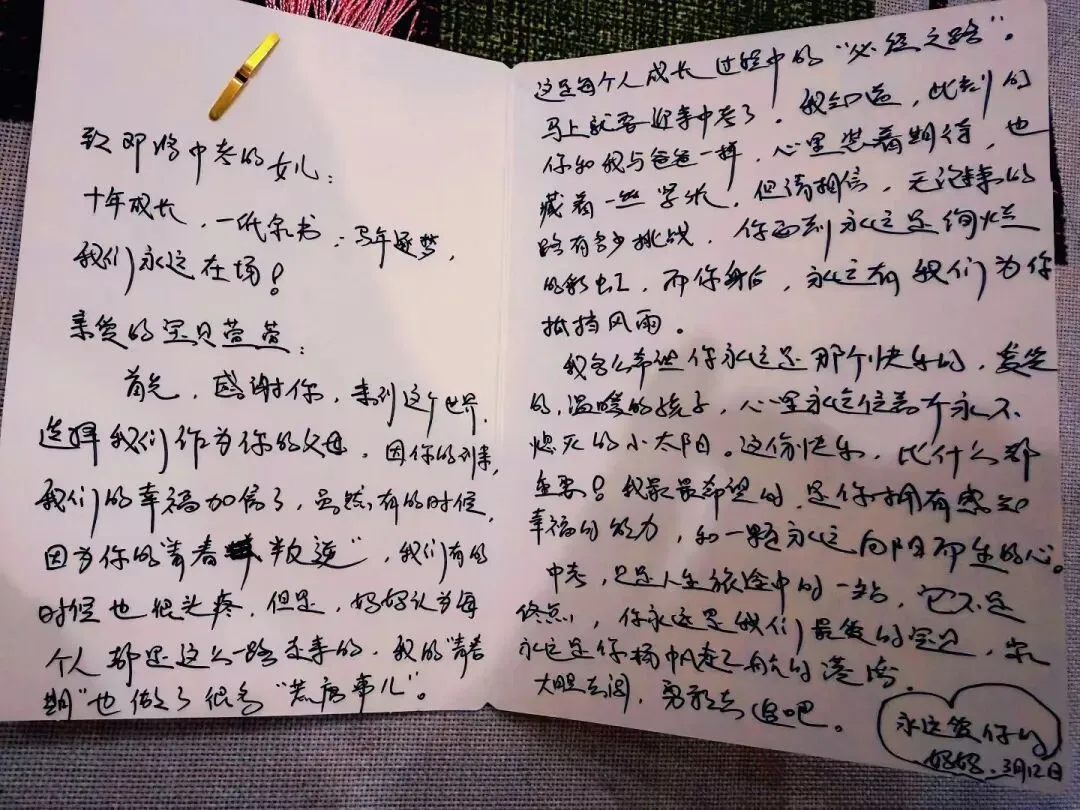 致即将中考的女儿：
十年成长，一纸家书；马年逐梦，
我们永远在场！
亲爱的宝贝萱萱：
首先，感谢你，来到这个世界，
选择我们作为你的父母，因你的到来，
我们的幸福加倍了，虽然有的时候，
因为你的“青春叛逆”，我们有的
时候也很头疼，但是，妈妈认为每
个人都是这么一路走来的，我的“青春
期”也做了很多“荒唐事儿”。
这是每个人成长过程中的“必经之路”。
马上就要迎来中考了，我知道，此刻的
你和我与爸爸一样，心里装着期待，也
藏着一丝紧张，但请相信，无论未来的
路有多少挑战，你面前永远是绚烂
的彩虹，而你身后，永远有我们为你
抵挡风雨。
我多么希望你永远是那个快乐的，
的，温暖的孩子，心里永远住着个永不
熄灭的小太阳。这份快乐，比什么都
重要！我最最希望的，是你拥有感知
幸福的能力，和一颗永远向阳而生的心。
中考，只是人生旅途中的一站，它不是
终点，你永远是我们最爱的宝贝，家
永远是你扬帆起航的港湾。
大胆去闯，勇敢去追吧。
永远爱你的
妈妈．3月12日